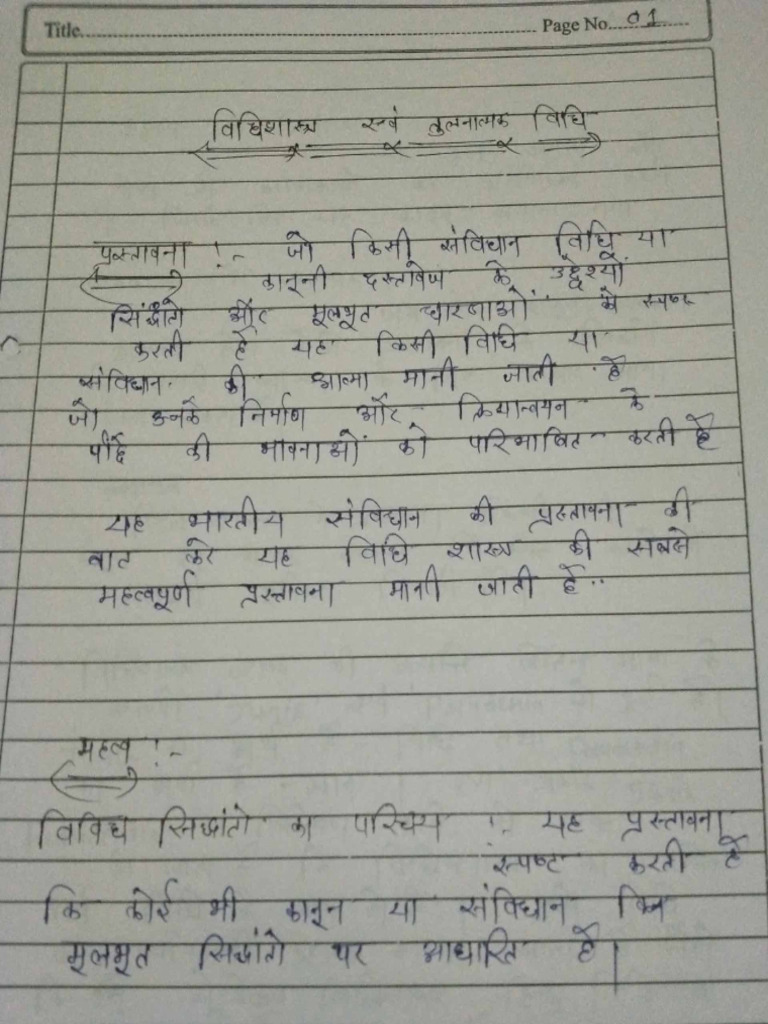 Title........ Page No. 01
विधिशास्त्र एवं तुलनात्मक विधि
प्रस्तावना :- जो किसी संविधान विधि या
कानूनी दस्तावेज के उद्देश्यों
सिद्धांतो और मूलभूत धारणाओं को स्पष्ट
करती है यह किसी विधि या
संविधान की आत्मा मानी जाती है
जो उनके निर्माण और क्रियान्वयन के
पीछे की भावनाओं को परिभाषित करती है
यह भारतीय संविधान की प्रस्तावना की
बात करे यह विधि शास्त्र की सबसे
महत्वपूर्ण प्रस्तावना मानी जाती है..
महत्व :-
विविध सिद्धांतो का परिचय :- यह प्रस्तावना
स्पष्ट करती है
कि कोई भी कानून या संविधान किन
मूलभूत सिद्धांतो पर आधारित है|